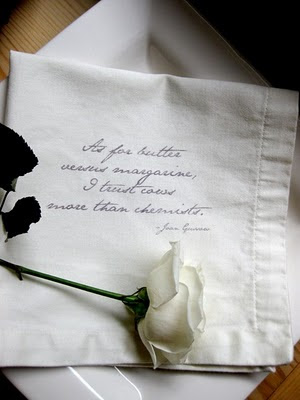 As for butter
versus margarine,
I trust cows
more than chemists.
~ Joan Gussow